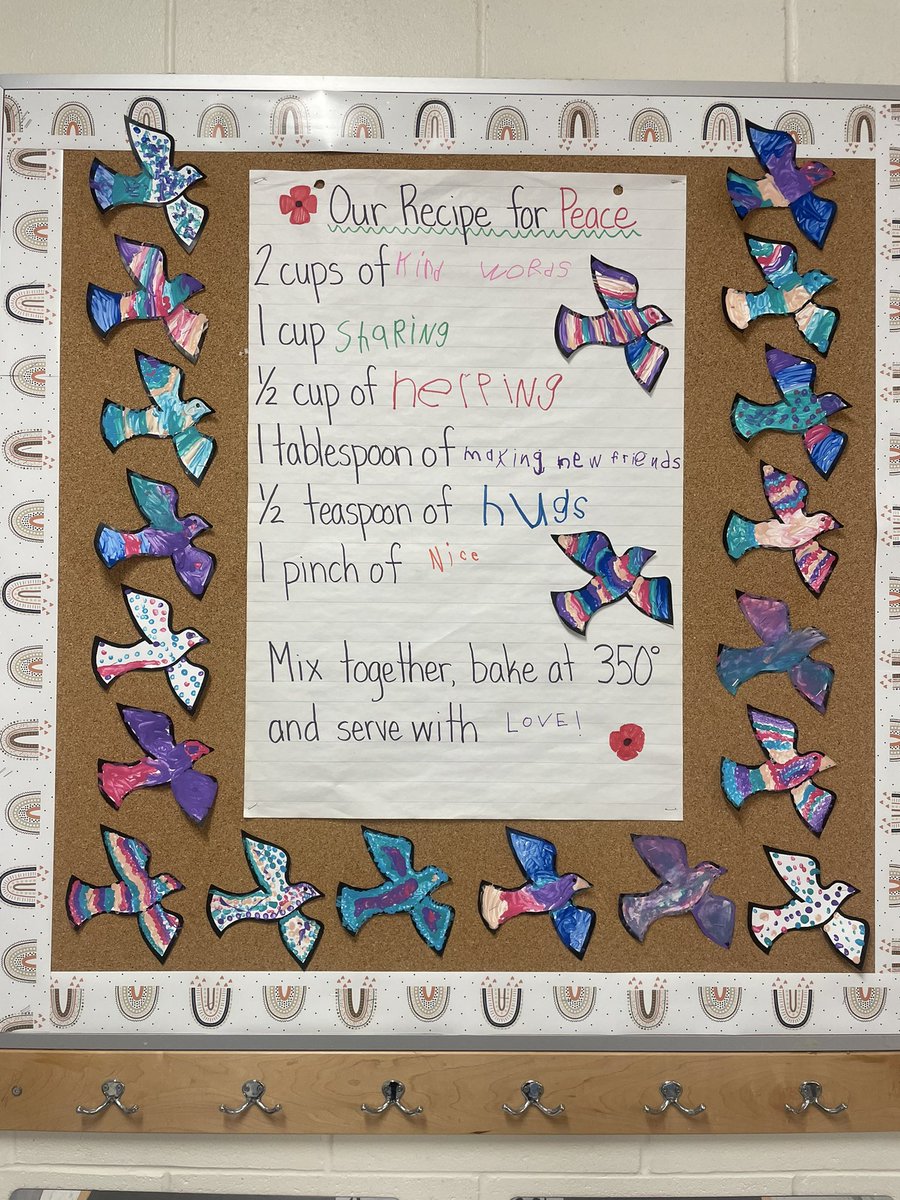 Our Recipe for Peace
2 cups of kind words
1 cup sharing
½ cup of helping
1 tablespoon of making new friends
½ teaspoon of hugs
1 pinch of Nice
Mix together, bake at 350°
and serve with LOVE!